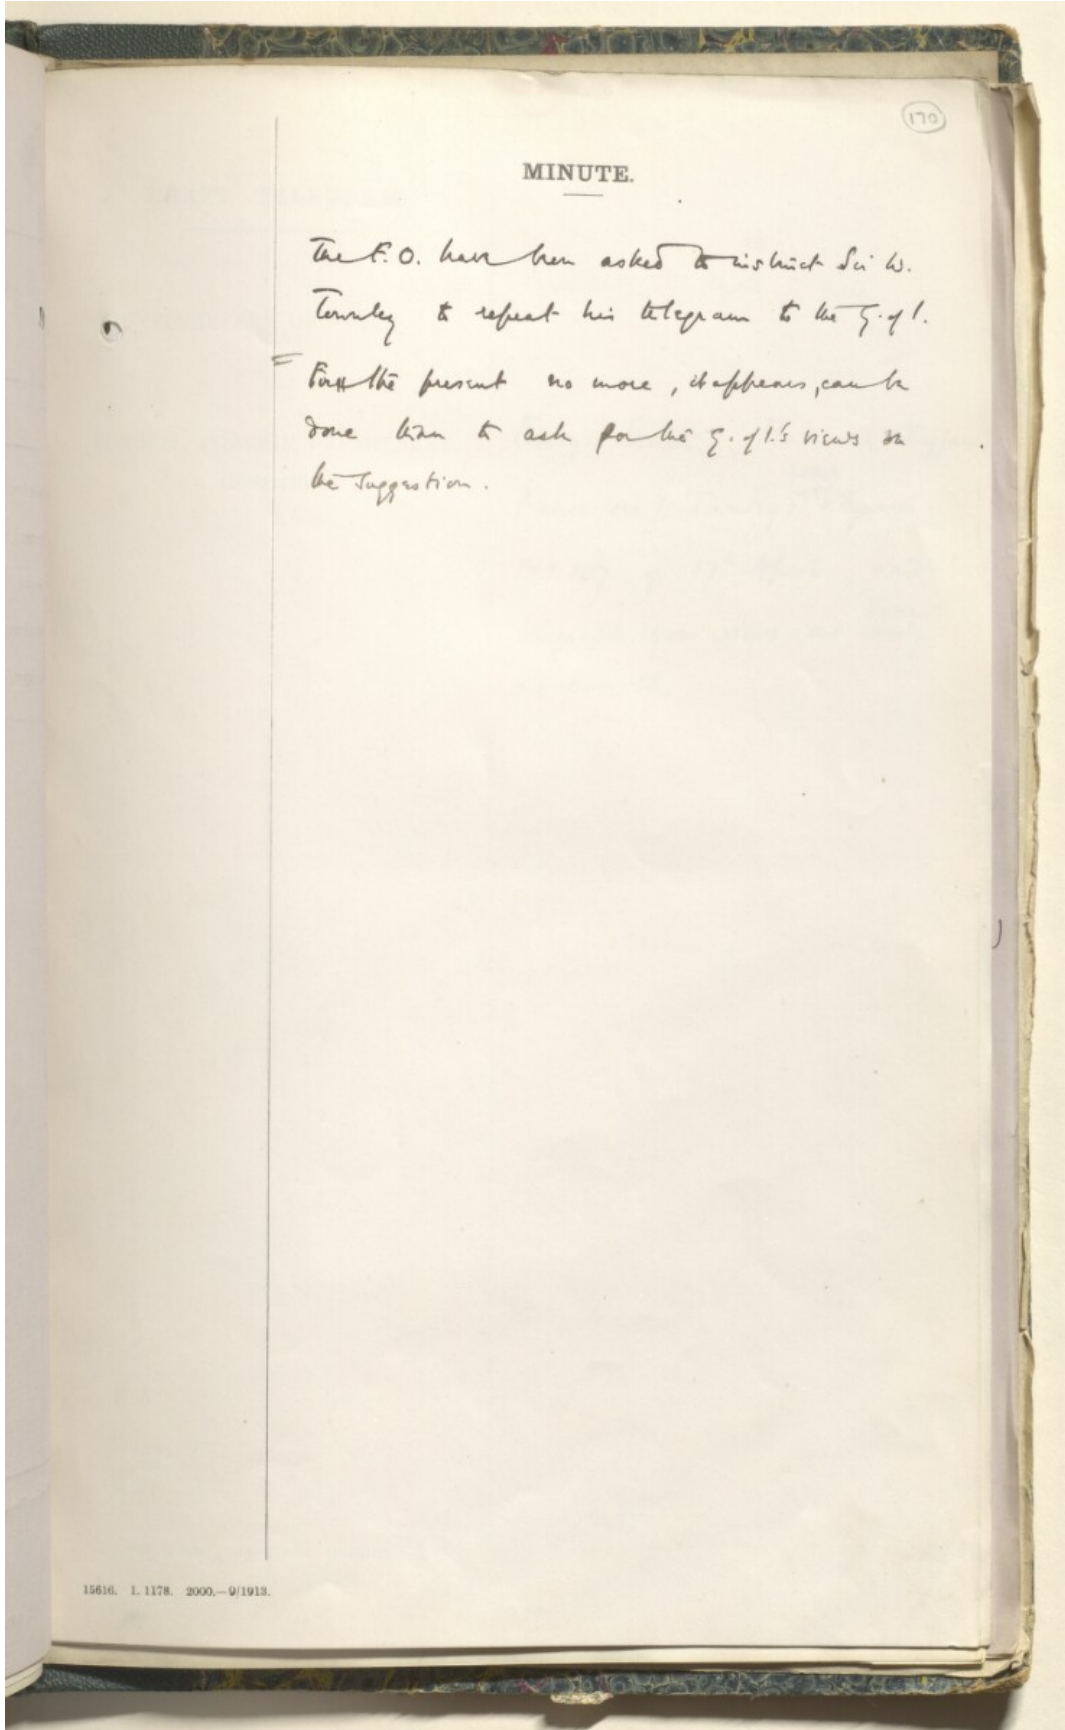 170
MINUTE.
The F.O. have been asked to instruct Sir W.
Townley to repeat his telegram to the G. of I.
For the present no more, it appears, can be
done than to ask for the G. of I.'s views on
the suggestion.
15616. I. 1178. 2000.—9/1913.